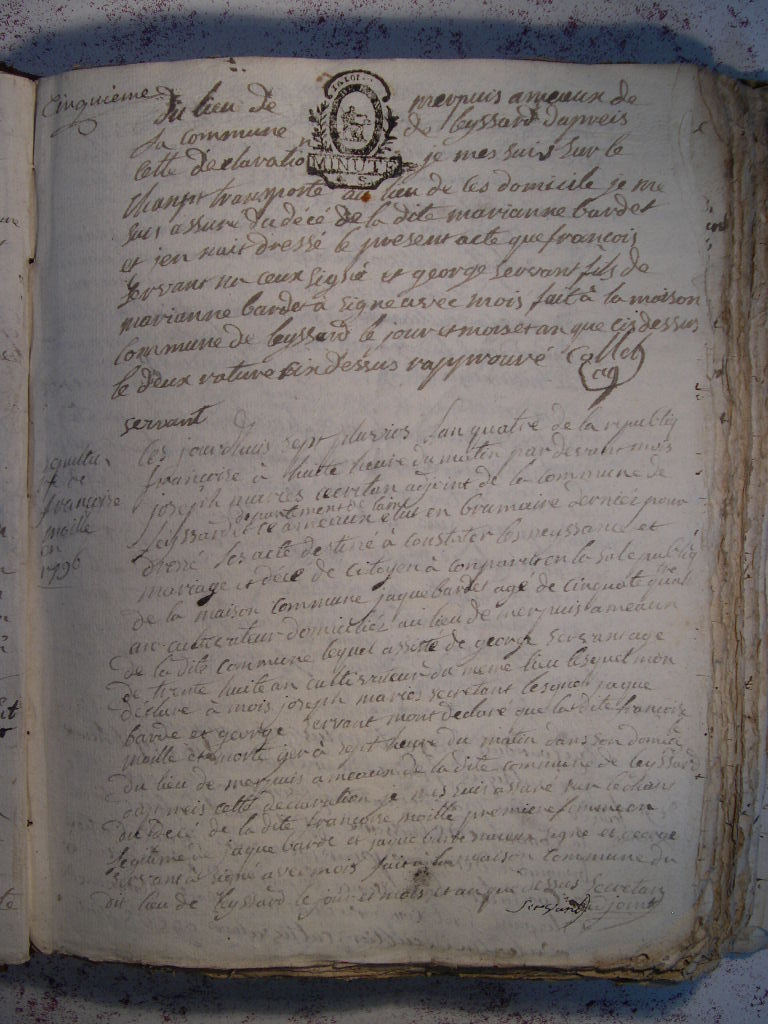 Cinquieme
du lieu de merpuis ameaux de
la commune de leyssard dapreis
cette declaration je mes suis sur le
MINUTE
champt transporté au lieu de ces domicile je me
suis assure du décé de la dite marianne bardet
et jen nait dressé le present acte que françois
servant na ceux signé et george servant fils de
marianne bardet à signé avec mois fait à la maison
commune de leyssard le jour et mois et an que cidessus
le deux rature cindessus rapprouvé Collet
ag
servant
françoise
maille
en
1796
Ces jourdhuis sept pluvios lan quatre de la republiq
françoise à huitte heure du matin par devant mois
joseph maries secretan adjoint de la commune de
departement de lain
leissard et ce ameaux élut en brumaire dernier pour
dressé les acte destiné à constater les neyssance et
mariage et décé de citoyen à comparut en la sale publiq
de la maison commune jaque bardet agé de cinquate quat
an cultivateur domicilier au lieu de merpuis ameaux
de la dite commune lequel assiste de george servant age
de trente huite an cultivateur du meme lieu lesquel mon
declare à mois joseph maries secretant lesquel jaque
barde et george servant mont declaré que la dite françoise
maille et morte ier à sept heure du matin dans son domici
du lieu de merpuis ameaux de la dite commune de leyssard
dapreis cette declaration je mes suis assuré sur le chans
du décé de la dite françoise maille premiere femme en
legitime de jaque barde et jaque barde naceux signé et george
servant à signé avec mois fait à la maison commune du
dit lieu de leyssard le jour et mois et an que dessus secretan
servant adjoint